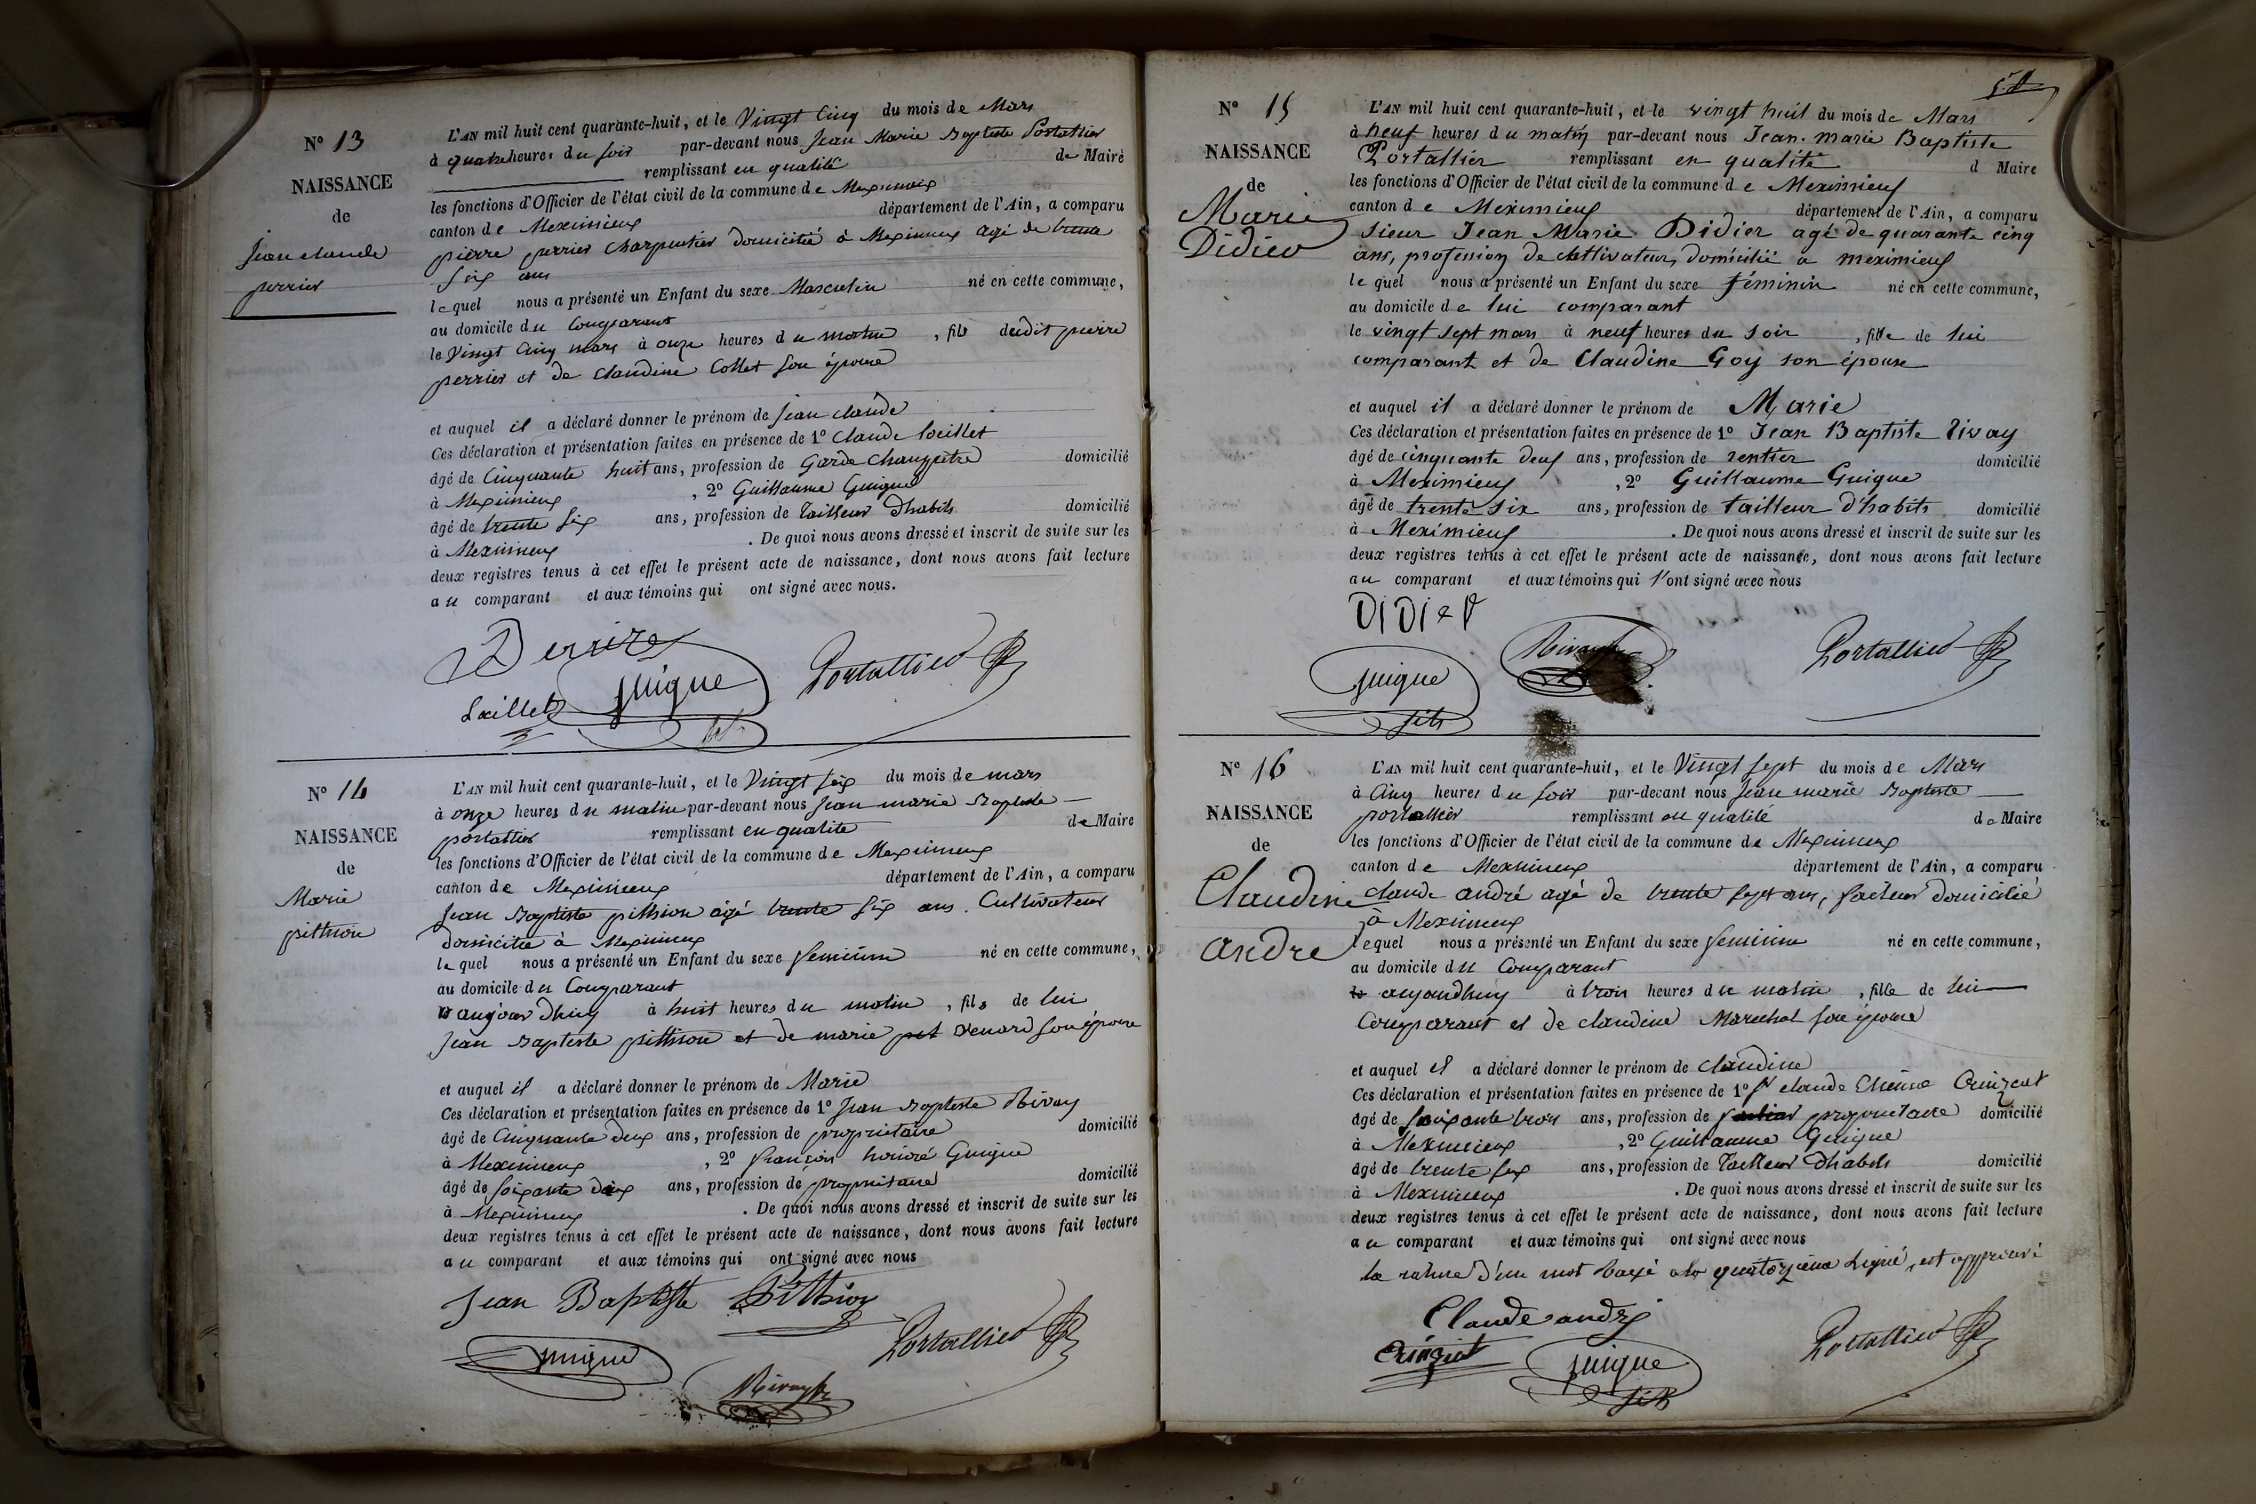 N° 13
NAISSANCE
de
Jean claude
perrier
L'AN mil huit cent quarante-huit, et le Vingt Cinq du mois de Mars
à quatre heures du soir par-devant nous Jean Marie Baptiste Portallier
remplissant en qualité de Maire
les fonctions d'Officier de l'état civil de la commune de Meximieux
canton de Meximieux département de l'Ain, a comparu
pierre perrier charpentier domicilié à Meximieux agé de trente
six ans
lequel nous a présenté un Enfant du sexe Masculin né en cette commune,
au domicile du Comparant
le Vingt Cinq mars à onze heures du matin, fils dudit pierre
perrier et de claudine Collet son épouse
et auquel il a déclaré donner le prénom de Jean claude
Ces déclaration et présentation faites en présence de 1° Claude Loeillet
âgé de Cinquante huit ans, profession de Garde Champêtre domicilié
à Meximieux, 2° Guillaume Guigue
âgé de trente six ans, profession de tailleur d'habits domicilié
à Meximieux. De quoi nous avons dressé et inscrit de suite sur les
deux registres tenus à cet effet le présent acte de naissance, dont nous avons fait lecture
au comparant et aux témoins qui ont signé avec nous.
Portallier
guigue
N° 14
NAISSANCE
de
Marie
pithion
L'AN mil huit cent quarante-huit, et le Vingt six du mois de mars
à onze heures du matin par-devant nous Jean marie Baptiste
portallier remplissant en qualité de Maire
les fonctions d'Officier de l'état civil de la commune de Meximieux
canton de Meximieux département de l'Ain, a comparu
Jean Baptiste pithion âgé trente six ans. Cultivateur
domicilié à Meximieux
lequel nous a présenté un Enfant du sexe feminin né en cette commune,
au domicile du Comparant
aujourdhuy à huit heures du matin, fils de lui
Jean Baptiste pithion et de marie venard son épouse
et auquel il a déclaré donner le prénom de Marie
Ces déclaration et présentation faites en présence de 1° Jean Baptiste Rivay
âgé de Cinquante deux ans, profession de proprietaire domicilié
à Meximieux, 2° françois honoré Guigue
âgé de soixante deux ans, profession de proprietaire domicilié
à Meximieux. De quoi nous avons dressé et inscrit de suite sur les
deux registres tenus à cet effet le présent acte de naissance, dont nous avons fait lecture
au comparant et aux témoins qui ont signé avec nous
Jean Baptiste Pithion
guigue
Portallier
N° 15
NAISSANCE
de
Marie
Didier
L'AN mil huit cent quarante-huit, et le vingt huit du mois de Mars
à neuf heures du matin par-devant nous Jean-marie Baptiste
Portallier remplissant en qualité d Maire
les fonctions d'Officier de l'état civil de la commune de Meximieux
canton de Meximieux département de l'Ain, a comparu
sieur Jean Marie Didier agé de quarante cinq
ans, profession de cultivateur, domicilié a meximieux
le quel nous a présenté un Enfant du sexe féminin né en cette commune,
au domicile de lui comparant
le vingt sept mars à neuf heures du soir, fille de lui
comparant et de Claudine Goy son épouse
et auquel il a déclaré donner le prénom de Marie
Ces déclaration et présentation faites en présence de 1° Jean Baptiste Rivay
âgé de cinquante deux ans, profession de rentier domicilié
à Meximieux, 2° Guillaume Guigue
âgé de trente six ans, profession de tailleur d'habits domicilié
à Meximieux. De quoi nous avons dressé et inscrit de suite sur les
deux registres tenus à cet effet le présent acte de naissance, dont nous avons fait lecture
au comparant et aux témoins qui l'ont signé avec nous
DIDIER
Portallier
guigue
fils
N° 16
NAISSANCE
de
Claudine
andre
L'AN mil huit cent quarante-huit, et le Vingt sept du mois de Mars
à Cinq heures du soir par-devant nous Jean marie Baptiste
portallier remplissant en qualité de Maire
les fonctions d'Officier de l'état civil de la commune de Meximieux
canton de Meximieux département de l'Ain, a comparu
claude andré agé de trente sept ans, facteur domicilié
à Meximieux
lequel nous a présenté un Enfant du sexe feminin né en cette commune,
au domicile du Comparant
aujourdhuy à trois heures du matin, fille de lui
Comparant et de claudine Marechal son épouse
et auquel il a déclaré donner le prénom de claudine
Ces déclaration et présentation faites en présence de 1° Sr claude Etienne Crinzeat
âgé de soixante trois ans, profession de proprietaire domicilié
à Meximieux, 2° Guillaume Guigue
âgé de trente six ans, profession de tailleur d'habits domicilié
à Meximieux. De quoi nous avons dressé et inscrit de suite sur les
deux registres tenus à cet effet le présent acte de naissance, dont nous avons fait lecture
au comparant et aux témoins qui ont signé avec nous
la rature d'un mot rayé a la quatorzieme Ligne, est approuvé
Claude andré
Portallier
guigue
fils